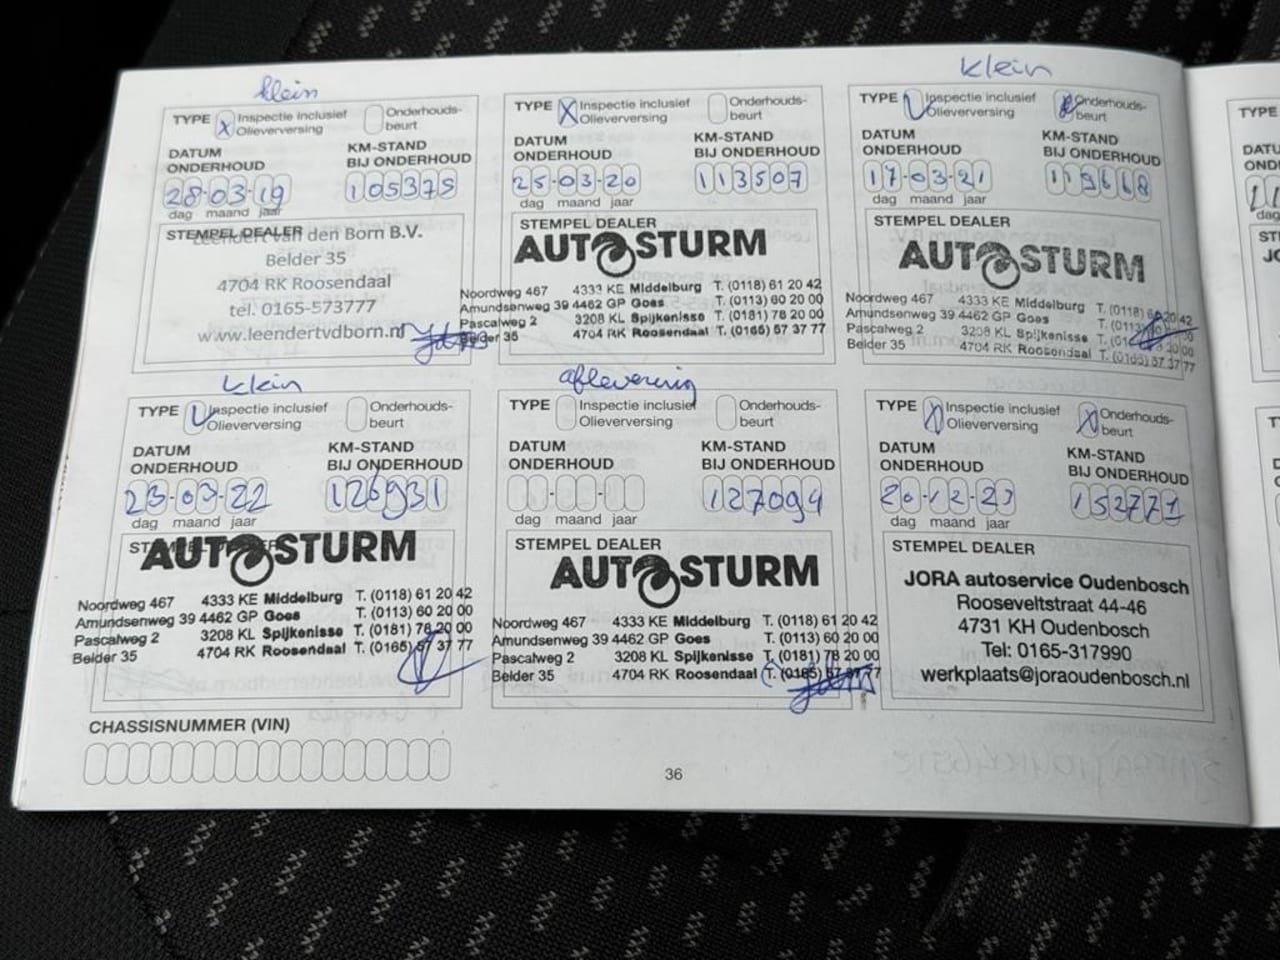 klein
TYPE Inspectie inclusief Olieverversing Onderhouds-beurt
DATUM ONDERHOUD KM-STAND BIJ ONDERHOUD
28-03-19 105375
dag maand jaar
STEMPEL DEALER
Leendert van den Born B.V.
Belder 35
4704 RK Roosendaal
tel. 0165-573777
www.leendertvdborn.nl
TYPE X Inspectie inclusief Olieverversing Onderhouds-beurt
DATUM ONDERHOUD KM-STAND BIJ ONDERHOUD
25-03-20 113507
dag maand jaar
STEMPEL DEALER
AUTOSTURM
Noordweg 467 4333 KE Middelburg T. (0118) 61 20 42
Amundsenweg 39 4462 GP Goes T. (0113) 60 20 00
Pascalweg 2 3208 KL Spijkenisse T. (0181) 78 20 00
Belder 35 4704 RK Roosendaal T. (0165) 57 37 77
klein
TYPE Inspectie inclusief Olieverversing Onderhouds-beurt
DATUM ONDERHOUD KM-STAND BIJ ONDERHOUD
17-03-21 119668
dag maand jaar
STEMPEL DEALER
AUTOSTURM
Noordweg 467 4333 KE Middelburg T. (0118) 61 20 42
Amundsenweg 39 4462 GP Goes T. (0113)
Pascalweg 2 3208 KL Spijkenisse
Belder 35 4704 RK Roosendaal T. (0165) 57 37 77
klein
TYPE Inspectie inclusief Olieverversing Onderhouds-beurt
DATUM ONDERHOUD KM-STAND BIJ ONDERHOUD
23-03-22 126931
dag maand jaar
STEMPEL DEALER
AUTOSTURM
Noordweg 467 4333 KE Middelburg T. (0118) 61 20 42
Amundsenweg 39 4462 GP Goes T. (0113) 60 20 00
Pascalweg 2 3208 KL Spijkenisse T. (0181) 78 20 00
Belder 35 4704 RK Roosendaal T. (0165) 57 37 77
aflevering
TYPE Inspectie inclusief Olieverversing Onderhouds-beurt
DATUM ONDERHOUD KM-STAND BIJ ONDERHOUD
127094
dag maand jaar
STEMPEL DEALER
AUTOSTURM
Noordweg 467 4333 KE Middelburg T. (0118) 61 20 42
Amundsenweg 39 4462 GP Goes T. (0113) 60 20 00
Pascalweg 2 3208 KL Spijkenisse T. (0181) 78 20 00
Belder 35 4704 RK Roosendaal T. (0165) 57 37 77
TYPE X Inspectie inclusief Olieverversing X Onderhouds-beurt
DATUM ONDERHOUD KM-STAND BIJ ONDERHOUD
20-12-23 152771
dag maand jaar
STEMPEL DEALER
JORA autoservice Oudenbosch
Rooseveltstraat 44-46
4731 KH Oudenbosch
Tel: 0165-317990
werkplaats@joraoudenbosch.nl
CHASSISNUMMER (VIN)
36
TYPE